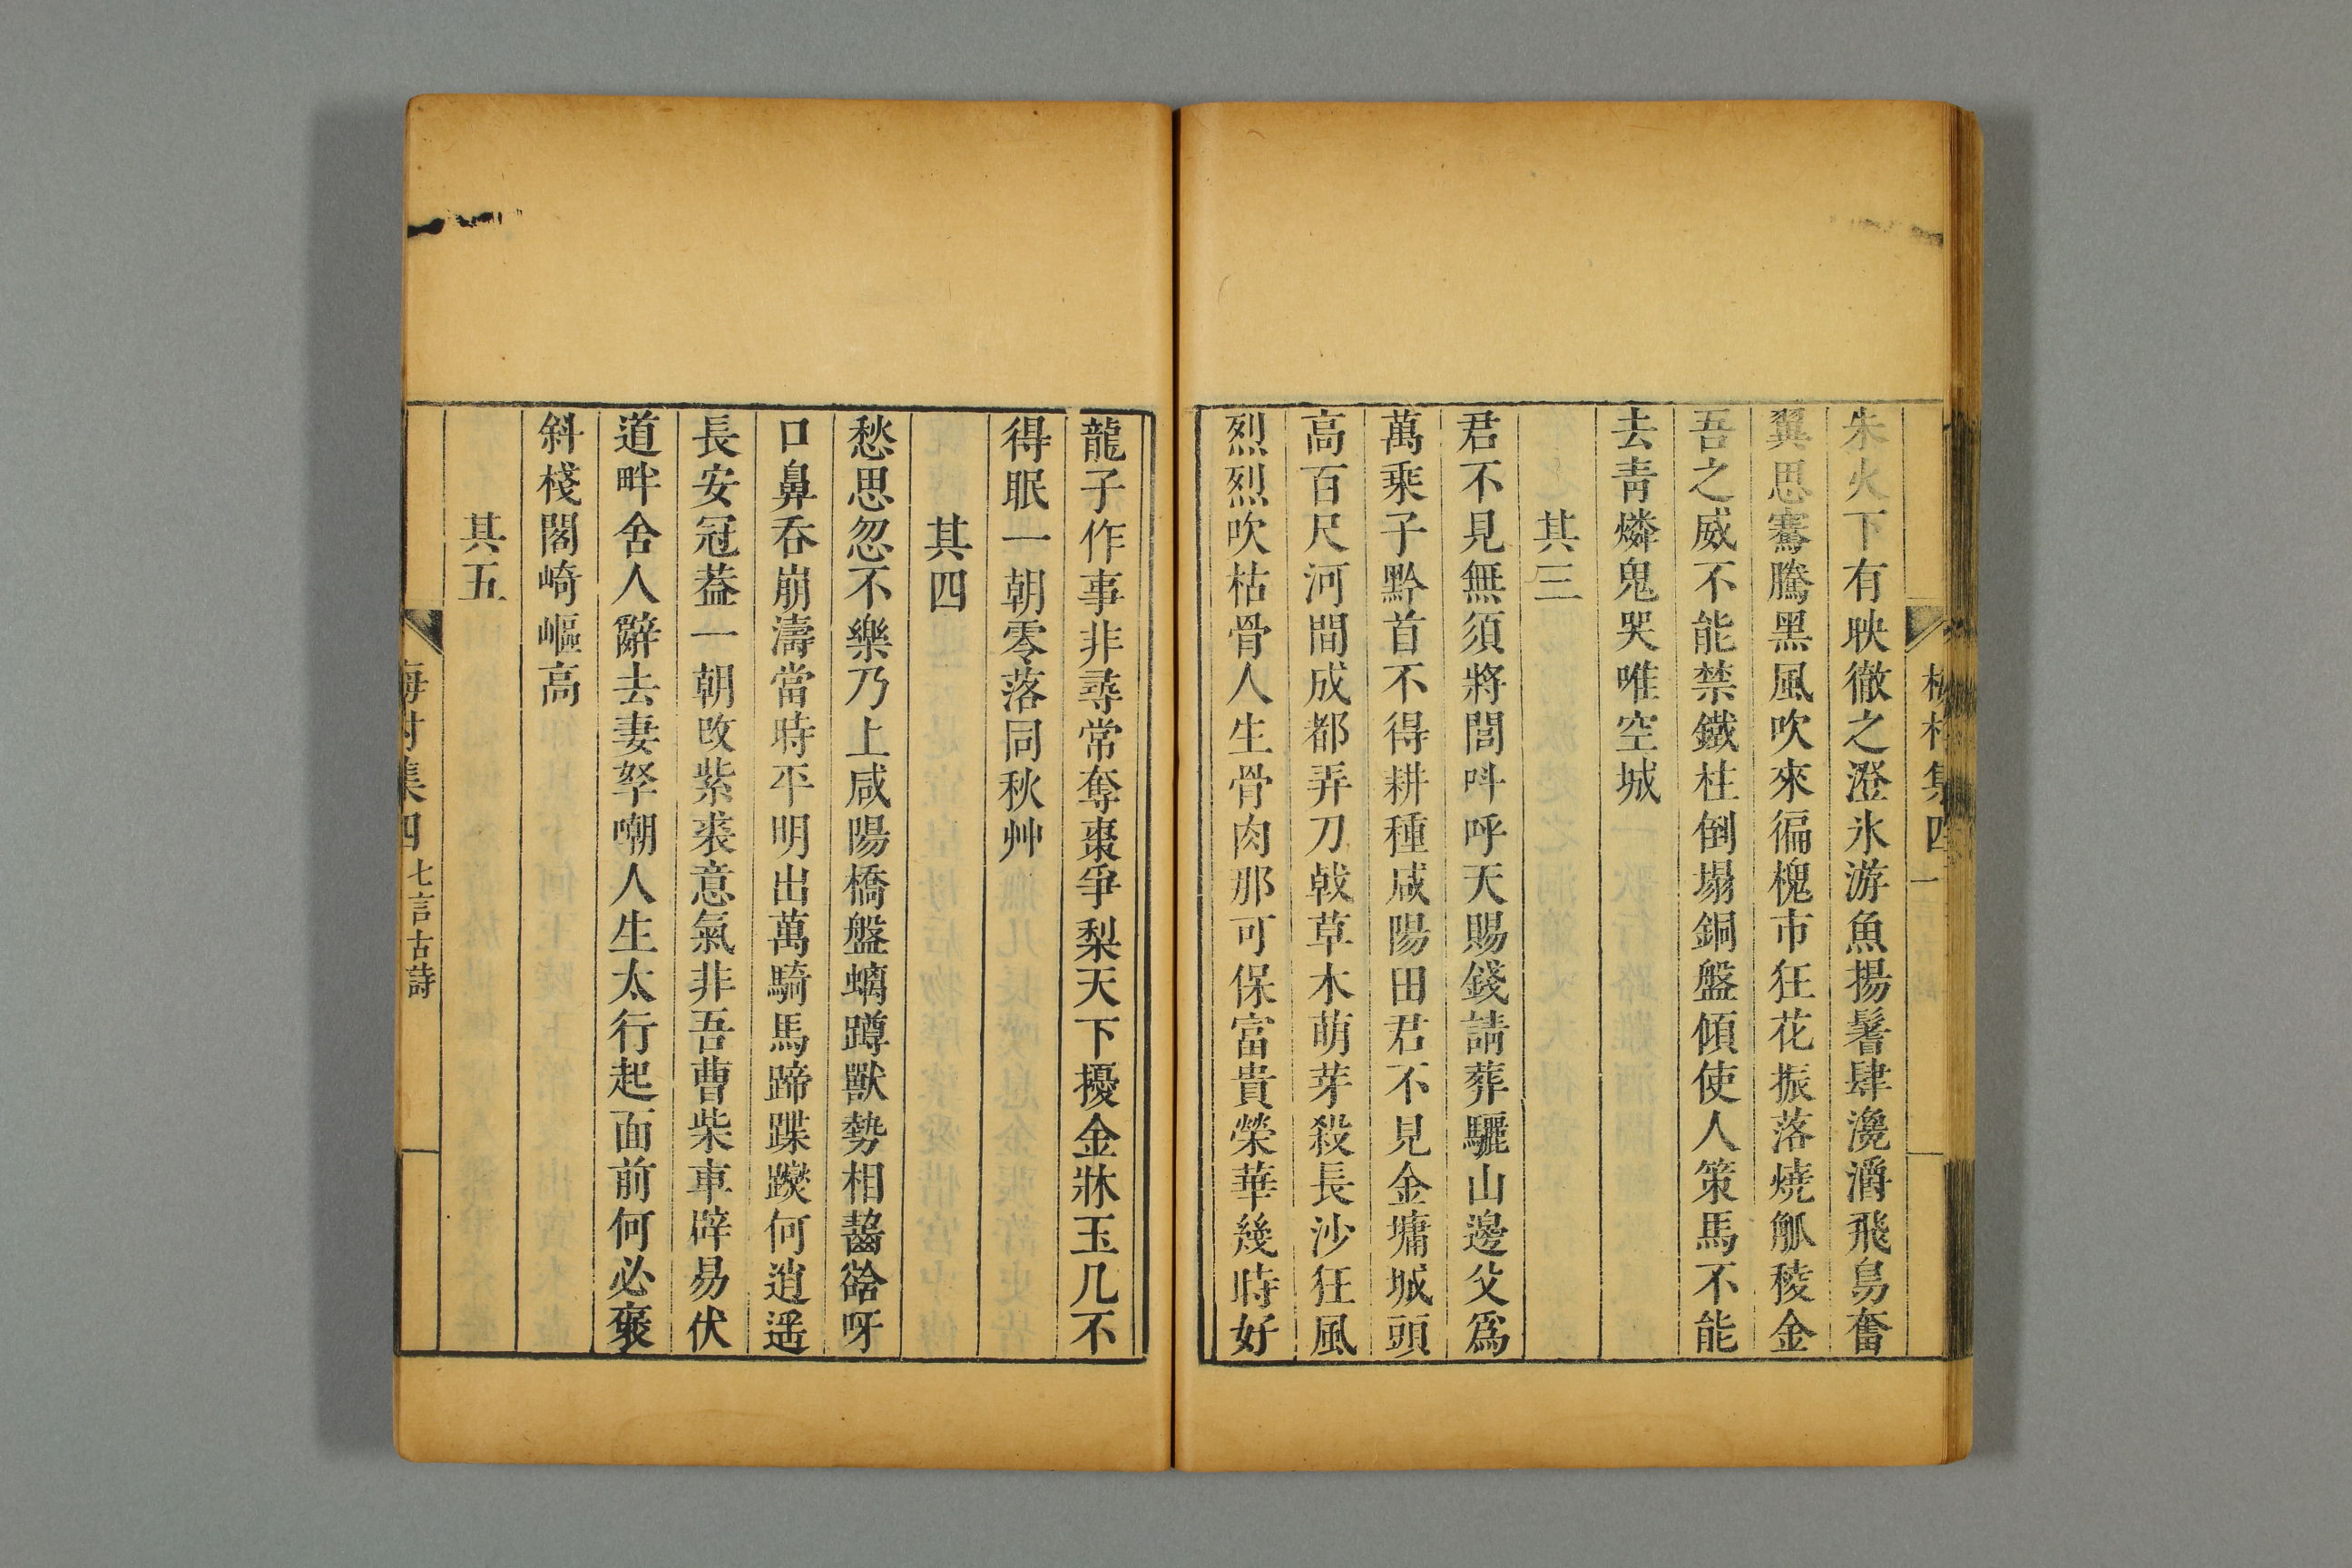 朱火下有映徹之澄氷游魚揚鬐肆灂飛鳥奮
翼思騫騰黑風吹來徧槐市狂花振落燒觚稜金
吾之威不能禁鐵柱倒塌銅盤傾使人策馬不能
去靑燐鬼哭唯空城
其三
君不見無須將閭呌呼天賜錢請葬驪山邊父爲
萬乘子黔首不得耕種咸陽田君不見金墉城頭
高百尺河間成都弄刀戟草木萌芽殺長沙狂風
烈烈吹枯骨人生骨肉那可保富貴榮華幾時好
龍子作事非尋常奪棗爭梨天下擾金牀玉几不
得眠一朝零落同秋艸
其四
愁思忽不樂乃上咸陽橋盤螭蹲獸勢相齧谽呀
口鼻吞崩濤當時平明出萬騎馬蹄蹀躞何逍遥
長安冠葢一朝改紫裘意氣非吾曹柴車辟易伏
道畔舍人辭去妻孥嘲人生太行起面前何必褒
斜棧閣崎嶇高
其五
梅村集四 七言古詩